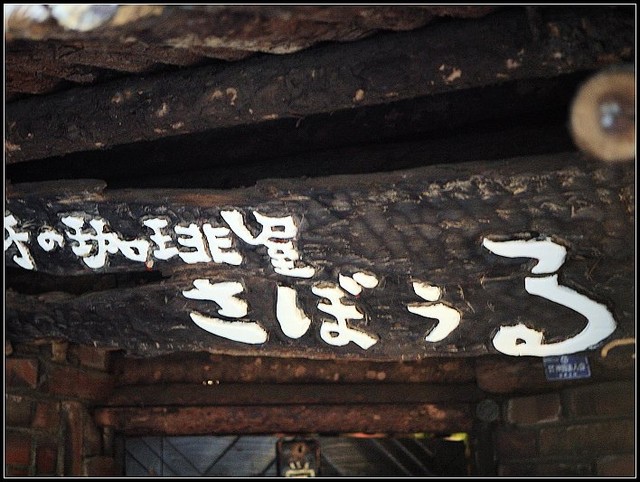 の珈琲屋
さぼうる